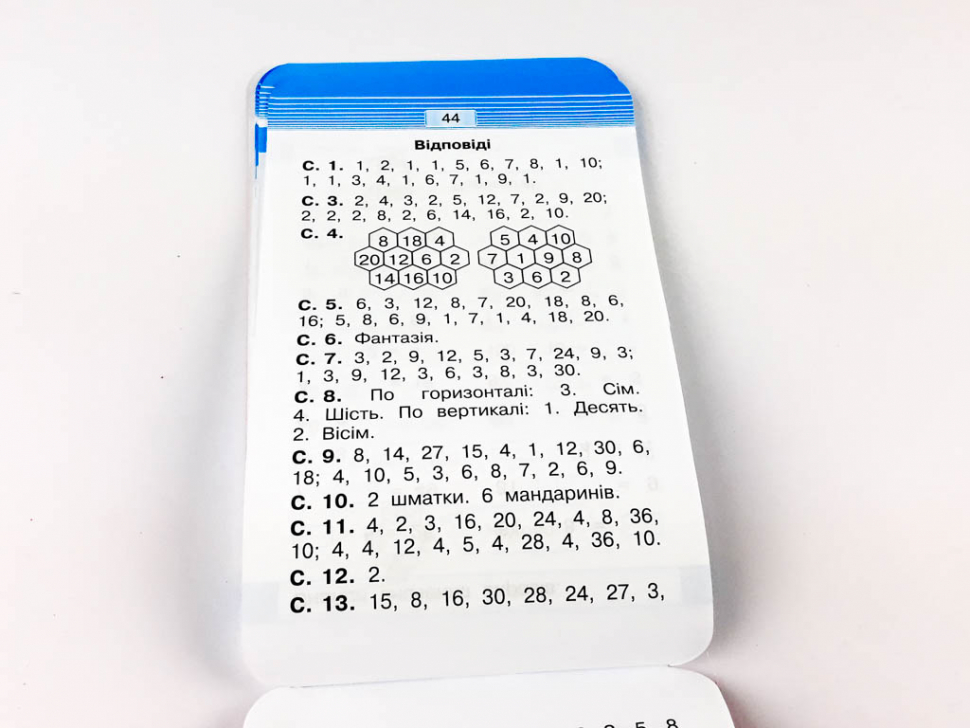 44
Відповіді
С. 1. 1, 2, 1, 1, 5, 6, 7, 8, 1, 10;
1, 1, 3, 4, 1, 6, 7, 1, 9, 1.
С. 3. 2, 4, 3, 2, 5, 12, 7, 2, 9, 20;
2, 2, 2, 8, 2, 6, 14, 16, 2, 10.
С. 4.
8 18 4 5 4 10
20 12 6 2 7 1 9 8
14 16 10 3 6 2
С. 5. 6, 3, 12, 8, 7, 20, 18, 8, 6,
16; 5, 8, 6, 9, 1, 7, 1, 4, 18, 20.
С. 6. Фантазія.
С. 7. 3, 2, 9, 12, 5, 3, 7, 24, 9, 3;
1, 3, 9, 12, 3, 6, 3, 8, 3, 30.
С. 8. По горизонталі: 3. Сім.
4. Шість. По вертикалі: 1. Десять.
2. Вісім.
С. 9. 8, 14, 27, 15, 4, 1, 12, 30, 6,
18; 4, 10, 5, 3, 6, 8, 7, 2, 6, 9.
С. 10. 2 шматки. 6 мандаринів.
С. 11. 4, 2, 3, 16, 20, 24, 4, 8, 36,
10; 4, 4, 12, 4, 5, 4, 28, 4, 36, 10.
С. 12. 2.
С. 13. 15, 8, 16, 30, 28, 24, 27, 3,